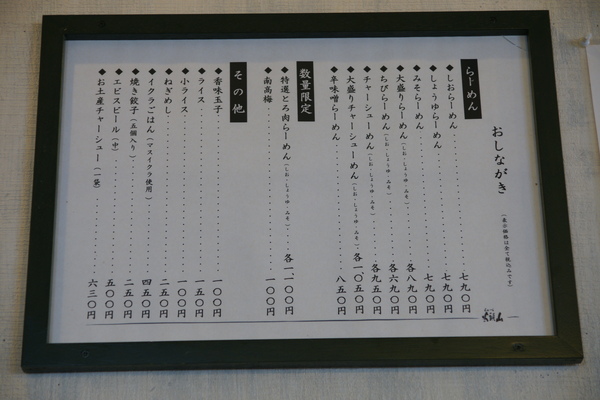 おしながき
（表示価格は全て税込みです）
らーめん
◆しおらーめん 七九〇円
◆しょうゆらーめん 七九〇円
◆みそらーめん 七九〇円
◆大盛りらーめん（しお・しょうゆ・みそ） 各八九〇円
◆ちびらーめん（しお・しょうゆ・みそ） 各六九〇円
◆チャーシューめん（しお・しょうゆ・みそ） 各九五〇円
◆大盛りチャーシューめん（しお・しょうゆ・みそ） 各一〇五〇円
◆辛味噌らーめん 八五〇円
数量限定
◆特選とろ肉らーめん（しお・しょうゆ・みそ） 各一一〇〇円
◆南高梅 一〇〇円
その他
◆香味玉子 一〇〇円
◆ライス 一五〇円
◆小ライス 一〇〇円
◆ねぎめし 二五〇円
◆イクラごはん（マスイクラ使用） 四五〇円
◆焼き餃子（五個入り） 二五〇円
◆エビスビール（中） 五〇〇円
◆お土産チャーシュー（一袋） 六三〇円